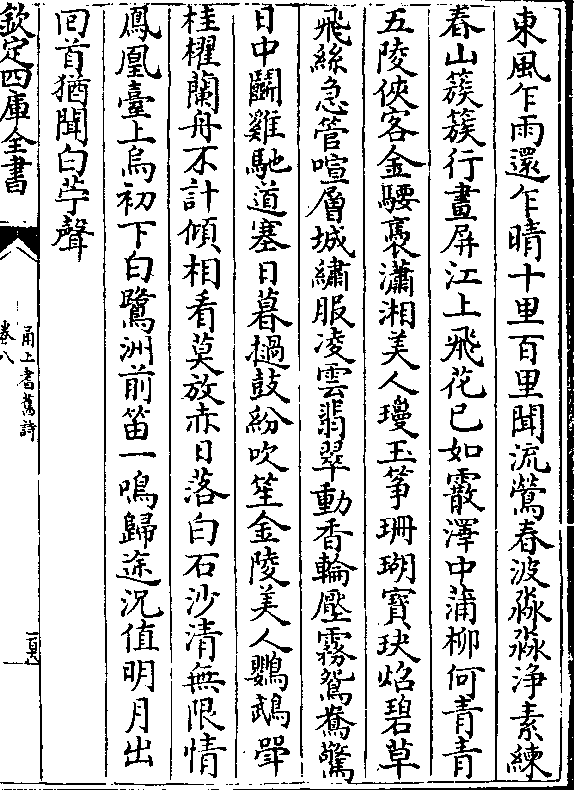 東風乍雨還乍晴十里百里聞流鶯春波淼淼浄素練
春山簇簇行畫屏江上飛花已如霰澤中蒲柳何青青
五陵俠客金騕褭瀟湘美人瓊玉筝珊瑚寳玦焰碧草
飛絲急管喧層城繡服凌雲翡翠動香輪壓霧鴛鴦驚
日中鬭雞馳道塞日暮撾鼓紛吹笙金陵美人鸚鵡斝
桂櫂蘭舟不計傾相看莫放赤日落白石沙清無限情
鳳凰臺上烏初下白鷺洲前笛一鳴歸途况值明月出
回首猶聞白苧聲
欽定四庫全書
甬上耆舊詩
卷八